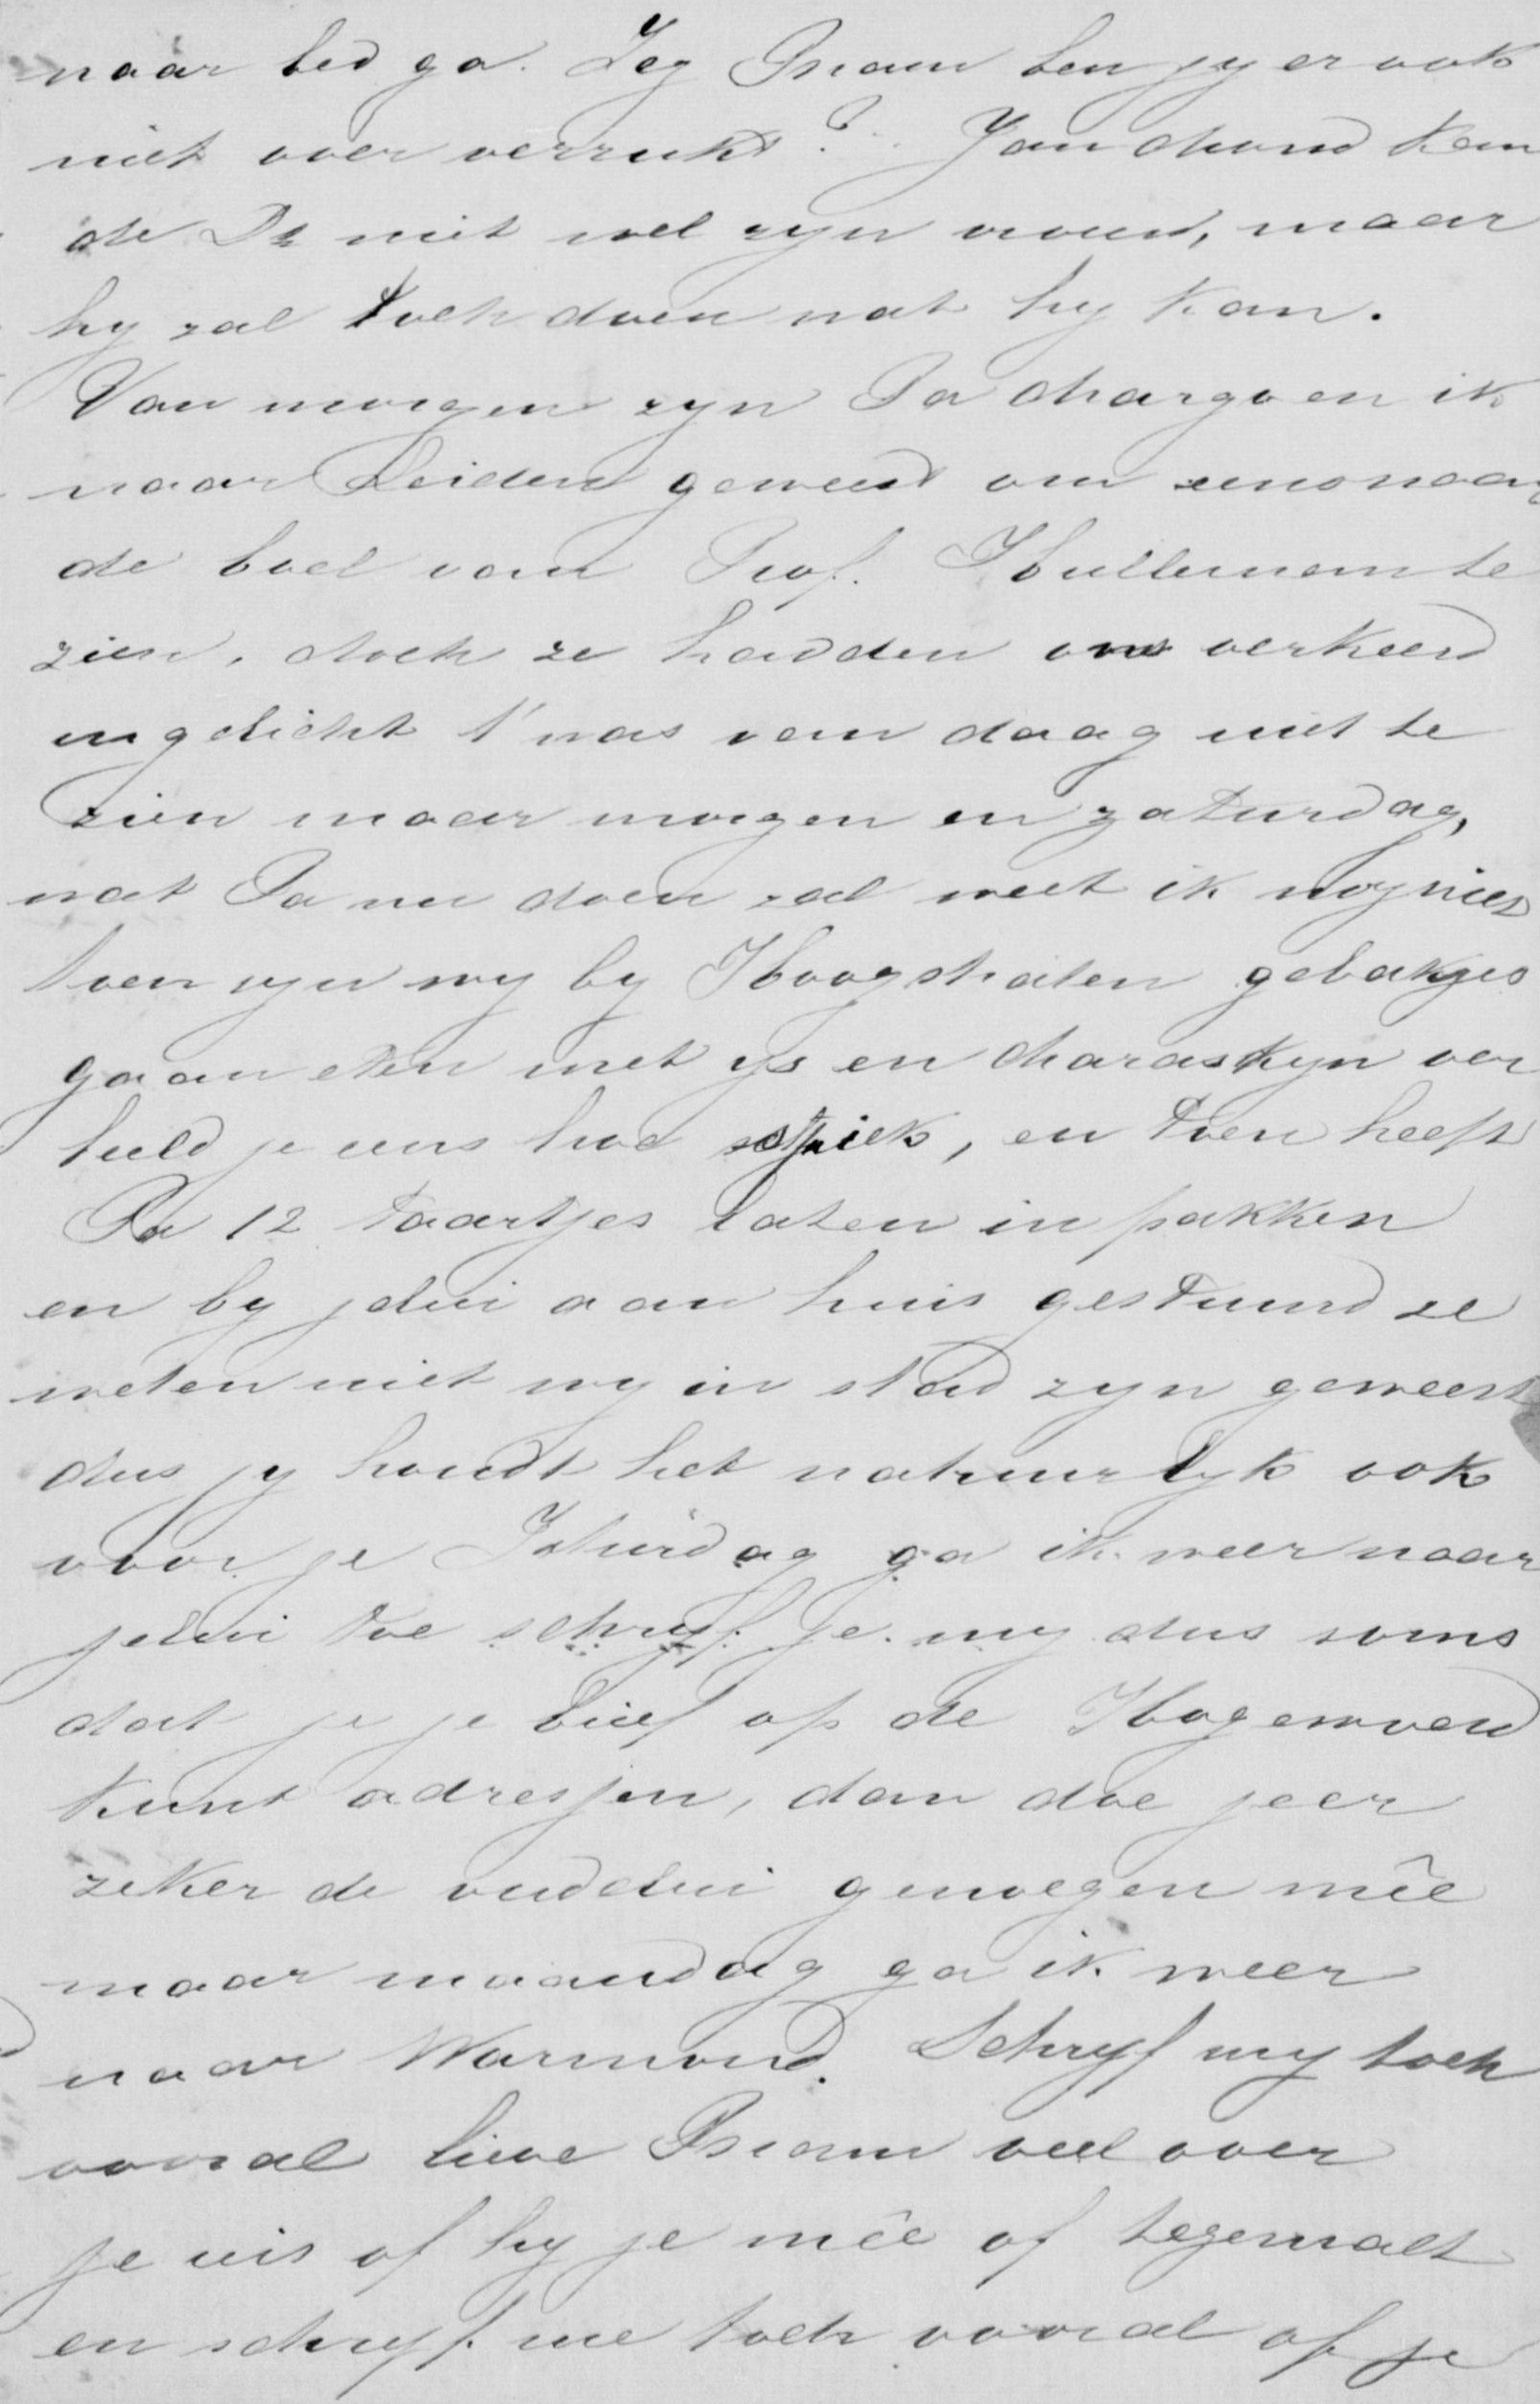 naar bed ga. Zeg Bram ben jy er ook
niet over verrukt? Jan schond kan
de Dr niet wel zyn vrouw, maar
hy zal toch doen wat hy kan.
Van morgen zyn Pa Margo en ik
naar Leiden geweest om eens naar
de boel van Prof. Hulleman te
zien, doch ze hadden ons verkeerd
ingelicht t'was van daag niet te
zien maar morgen en zaturdag,
wat Pa nu doen zal weet ik nog niet
toen zyn wy by Hoogstraten gebakjes
gaan eten met ys en Maraskyn ver
beeld je eens hoe sjiek, en toen heeft
Pa 12 taartjes laten in pakken
en by jelui aan huis gestuurd ze
weten niet wy in stad zyn geweest
dus jy houdt het natuurlyk ook
voor je Zaturdag ga ik weer naar
jelui toe schryf je my dus soms
dat je je brief op de Hogewoerd
kunt adresjen, dan doe je er
zeker de oudelui genoegen mêe
maar maandag ga ik weer
naar Warmond. Schryf my toch
vooral lieve Bram veel over
je reis of hy je mêe of tegenvalt
en schryf me toch vooral of je